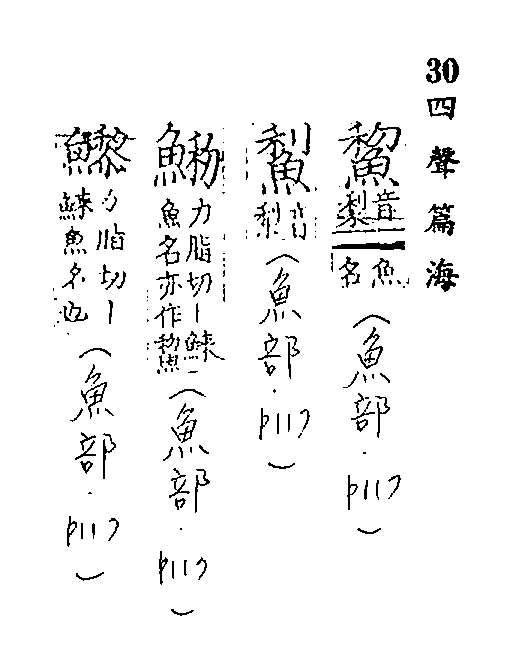 30四聲篇海
鯬音梨魚名(魚部.p117)
䱘音梨(魚部.p117)
力脂切｜鯠魚名亦作鯬(魚部.p117)
力脂切｜鯠魚名也(魚部.p117)